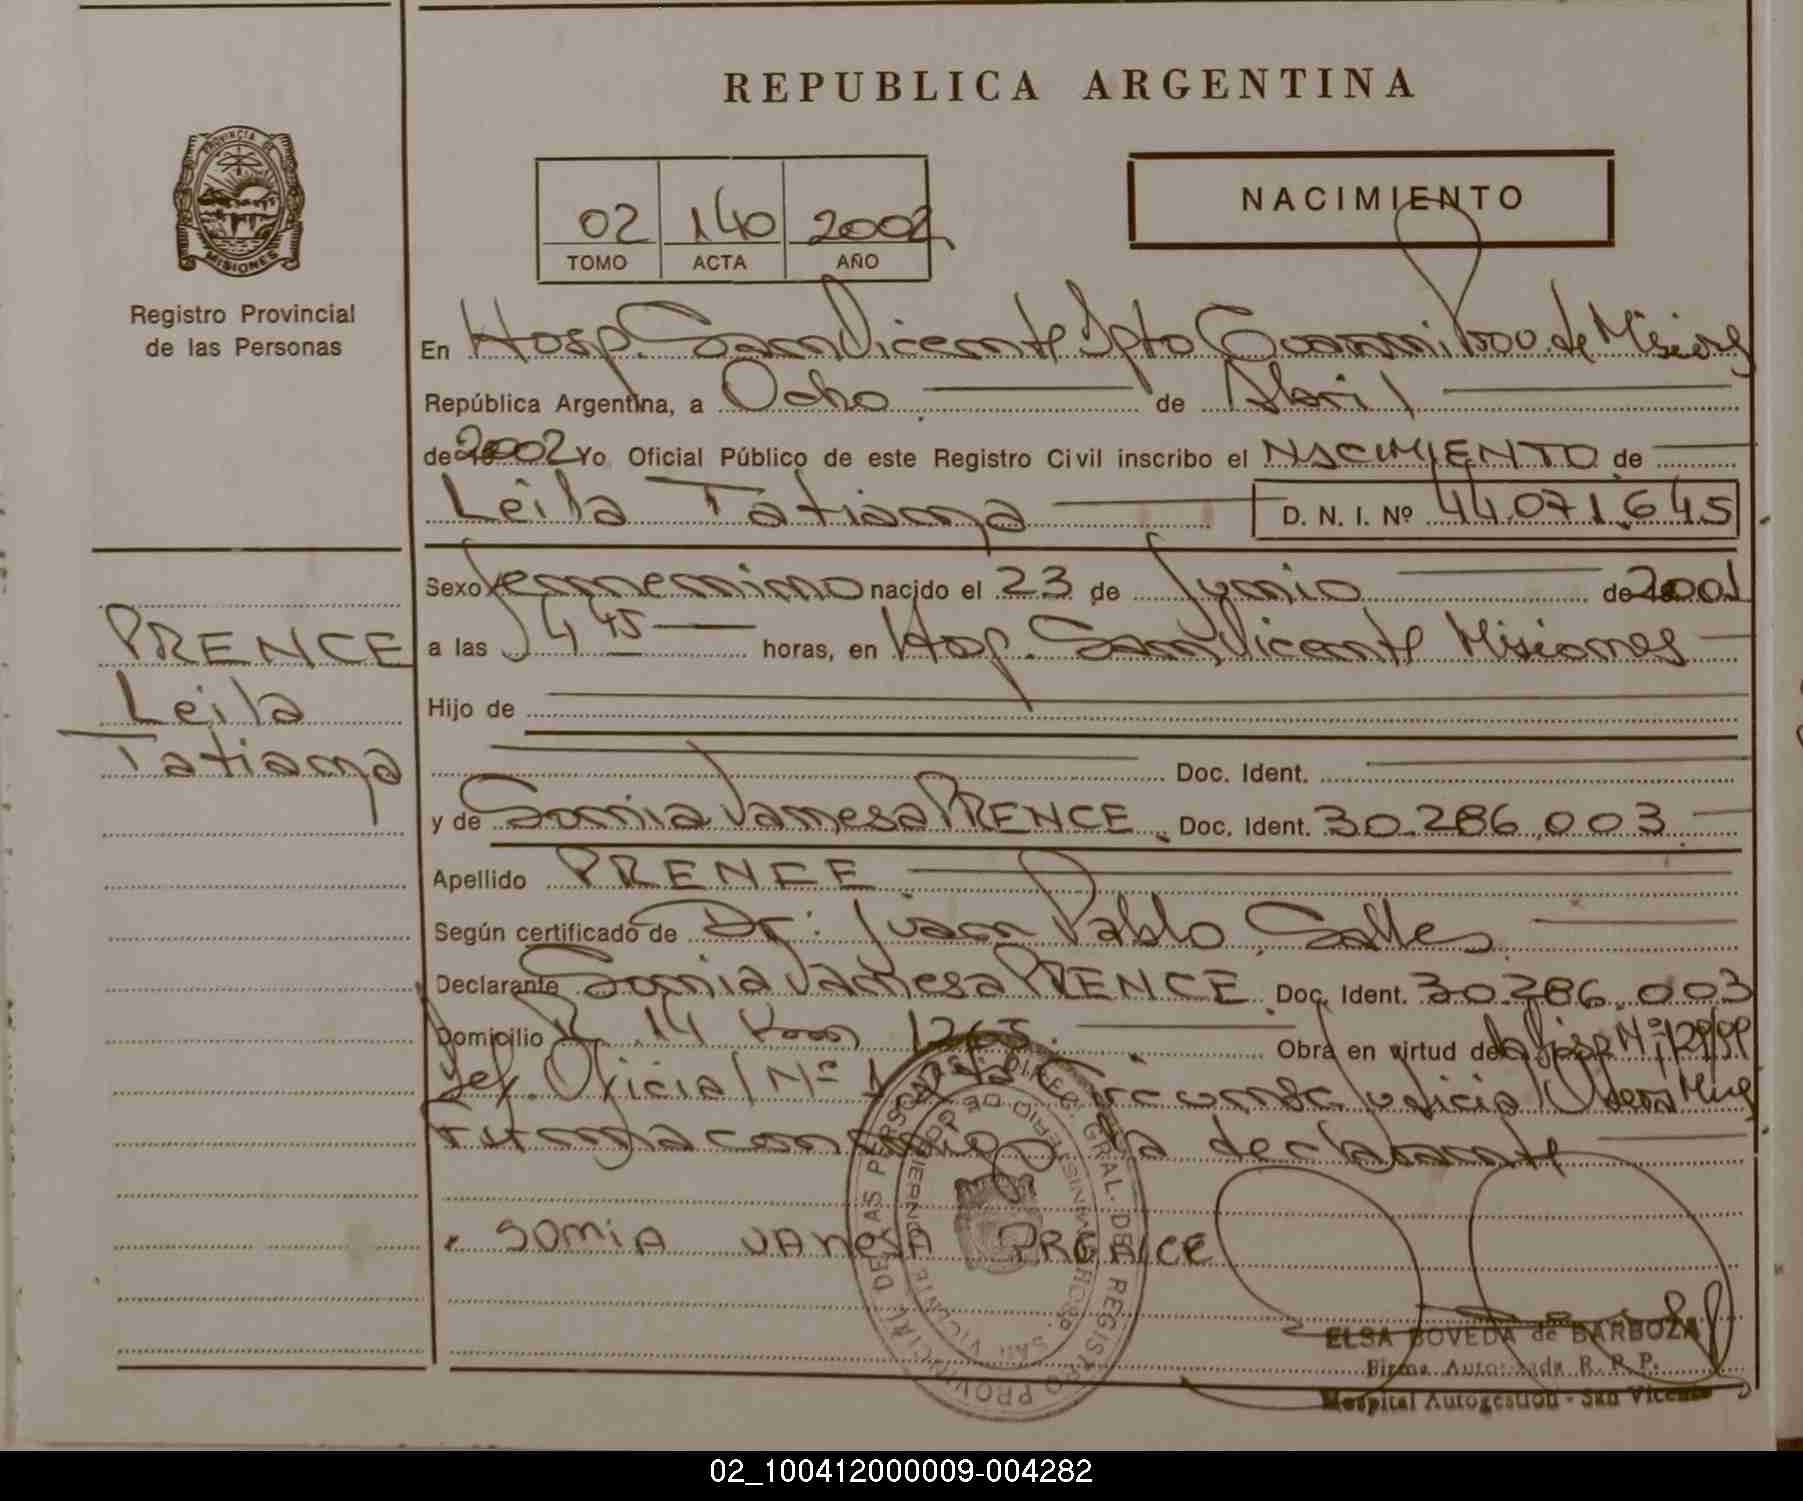 REPUBLICA ARGENTINA
PROVINCIA DE
MISIONES
Registro Provincial
de las Personas
02 140 2002
TOMO ACTA AÑO
NACIMIENTO
En Hosp. San Vicente Dpto Guarani Prov. de Misiones
República Argentina, a Ocho de Abril
de 2002 Yo Oficial Público de este Registro Civil inscribo el NACIMIENTO de
Leila Tatiana D. N. I. Nº 44.071.645
Sexo femenino nacido el 23 de Junio de 2001
a las 14 45 horas, en Hosp. San Vicente Misiones
Hijo de
Doc. Ident.
y de Sonia Vanesa PRENCE. Doc. Ident. 30.286.003
Apellido PRENCE
Según certificado de Dr: Juan Pablo Salle
Declarante Sonia Vanesa PRENCE Doc. Ident. 30.286.003
Domicilio R. 14 Km 1265. Obra en virtud de la Disp Nº 129/99
Def. Oficial Nº 1 Circunsc. Judicial Obera Mnes
Firma conmigo la declarante
SONIA VANESA PRENCE
PRENCE
Leila
Tatiana
DIREC. GRAL. DEL REGISTRO PROVINCIAL DE LAS PERSONAS
MINISTERIO DE GOBIERNO
HOSP. SAN VICENTE
ELSA BOVEDA de BARBOZA
Firma Autorizada R. P. P.
Hospital Autogestion - San Vicente
02_100412000009-004282